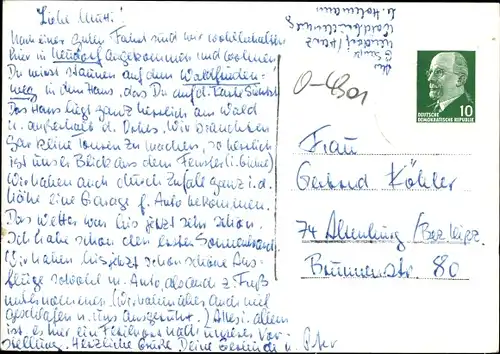 Liebe Mutti!
Nach einer guten Fahrt sind wir wohlbehalten
hier in Neudorf angekommen und wohnen
Du wirst staunen auf dem
weg in dem Haus, das Du auf d. Karte siehst
Das Haus liegt ganz herrlich am Wald
u. außerhalb d. Dorfes. Wir brauchten
gar keine Touren zu machen, so herrlich
ist unser Blick aus dem Fenster
Wir haben auch durch Zufall ganz i. d.
Nähe eine Garage f. Auto bekommen.
Das Wetter war bis jetzt sehr schön.
Ich habe schon den ersten Sonnenbrand.
Wir haben bis jetzt schon schöne Aus-
flüge sowohl m. Auto, als auch z. Fuß
unternommen (wir haben aber auch viel
geschlafen u. uns ausgeruht.) Alles i. allem
ist es hier ein Ferienort nach unserer Vor-
stellung. Herzliche Grüße Deine u. Peter
0-4301
10
DEUTSCHE
DEMOKRATISCHE REPUBLIK
Frau
Gertrud Köhler
74 Altenburg / Bez. Leipz.
Brunnenstr 80